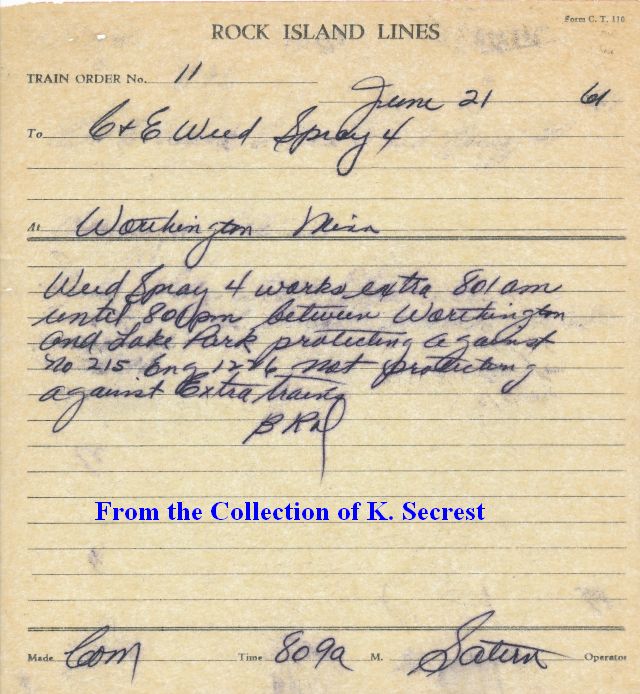 Form C. T. 110
ROCK ISLAND LINES
TRAIN ORDER No. 11
June 21 61
To C+E Weed Spray 4
At Worthington Minn
Weed Spray 4 works extra 801 am
until 801 pm between Worthington
and Lake Park protecting against
No 215 Eng 1276 not protecting
against Extra trains
From the Collection of K. Secrest
Made Com Time 809a M. Satern Operator